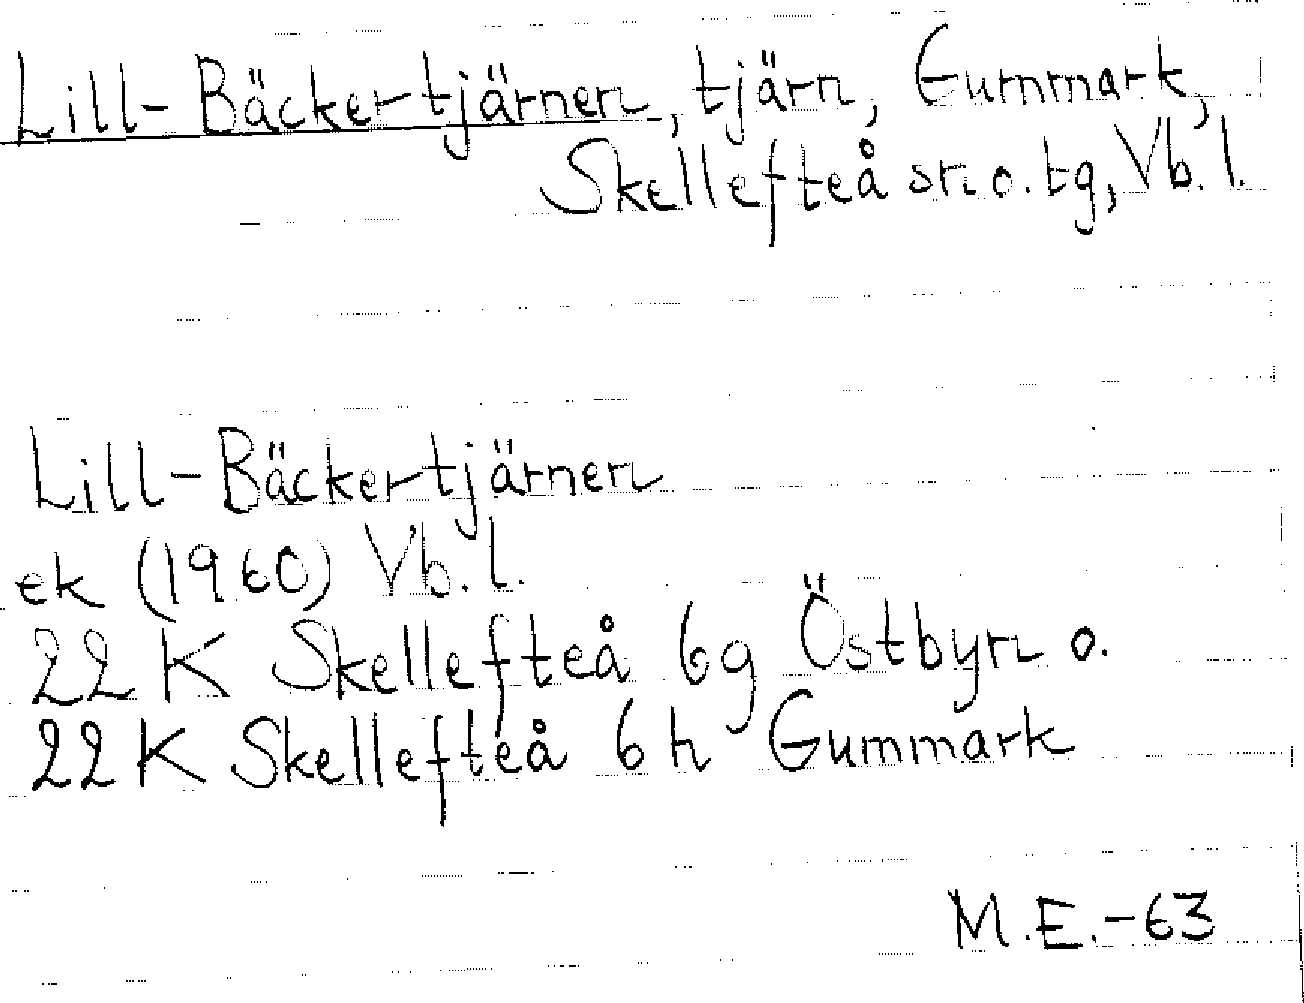 Lill-Bäckertjärnen, tjärn, Gummark,
Skellefteå sn o. tg, Vb. l.
Lill-Bäckertjärnen
ek (1960) Vb. l.
22 K Skellefteå 6g Östbyn o.
22 K Skellefteå 6 h Gummark
M.E.-63